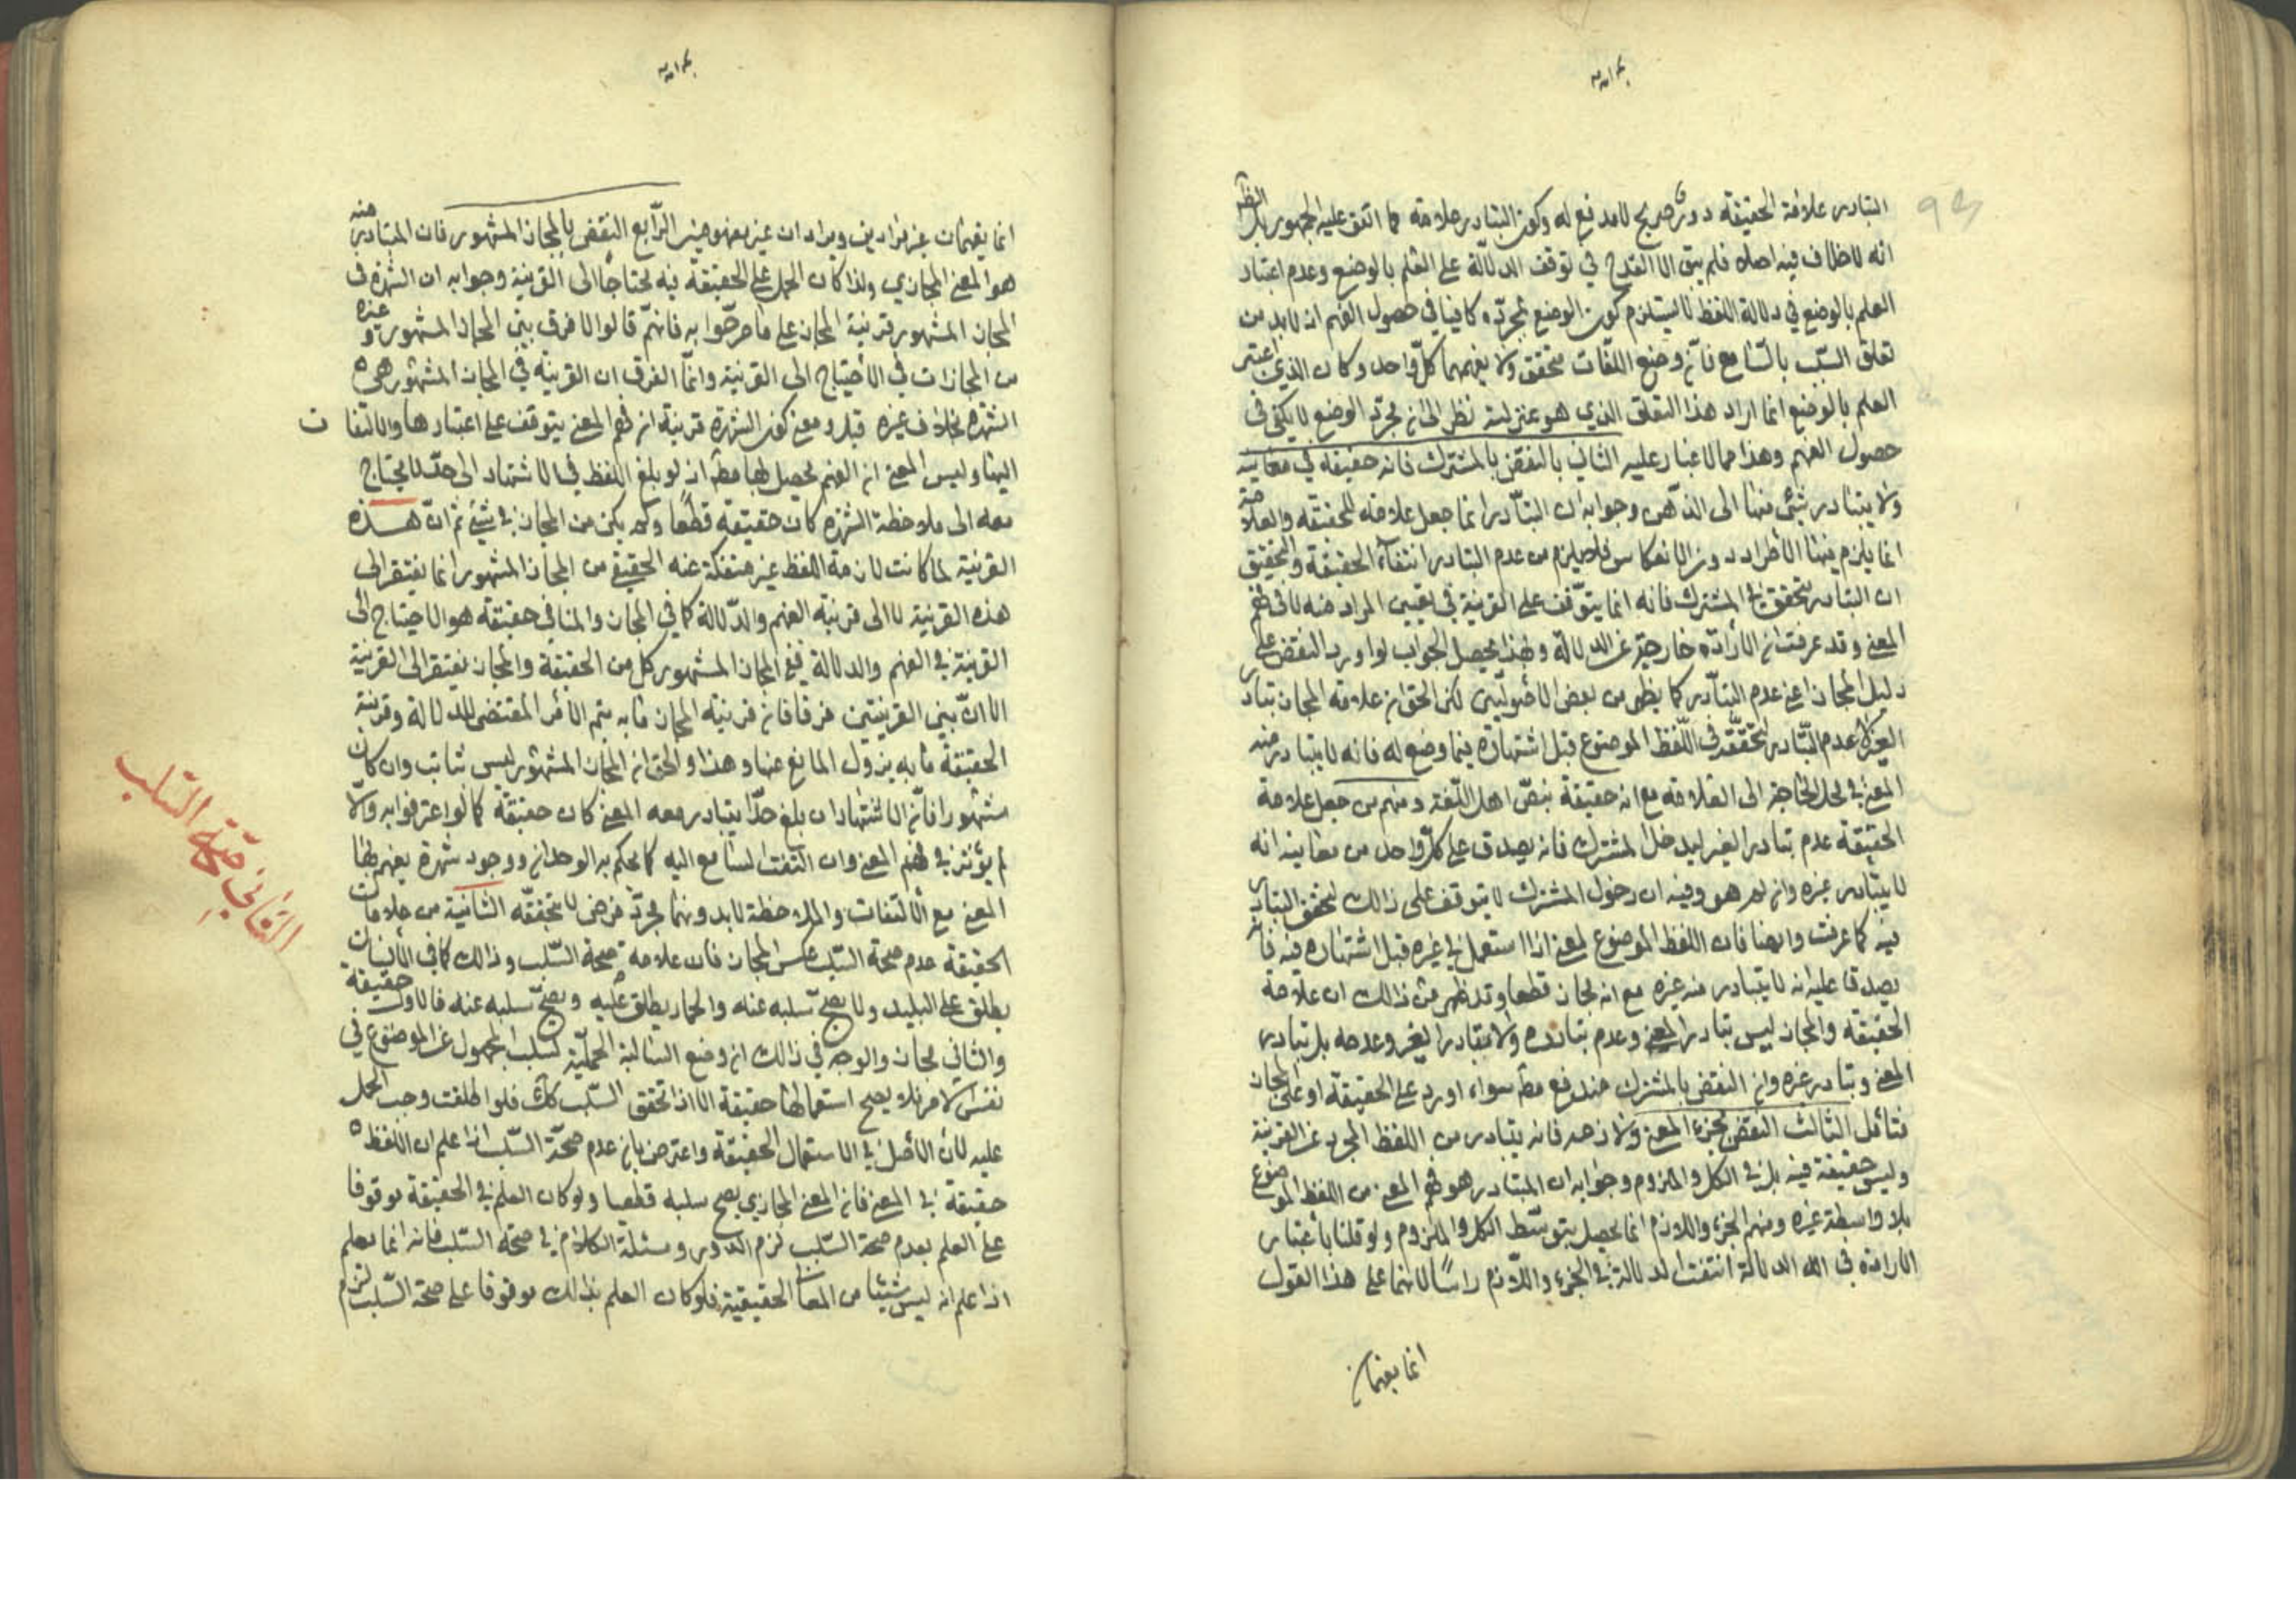 التبادر علامة الحقيقة دور صريح لا مدفع له وكون التبادر علامة مما اتفق عليه الجمهور بل الظ
انه لا خلاف فيه اصلا فلم يبق الا القدح في توقف الدلالة على العلم بالوضع وعدم اعتبار
العلم بالوضع في دلالة اللفظ لا يستلزم كون الوضع بمجرده كافيا في حصول الفهم اذ لابد من
تعلق السبب بالسامع فان وضع اللغات متحقق ولا يفهمها كل واحد وكان الذي اعتبر
العلم بالوضع انما اراد هذا التعلق الذي هو بمنزلته نظر الى ان مجرد الوضع لا يكفي في
حصول الفهم وهذا مما لا غبار عليه الثاني بالنقض بالمشترك فانه حقيقة في معانيه
ولا يتبادر شيء منها الى الذهن وجوابه ان التبادر انما جعل علامة للحقيقة والعلامة
انما يلزم فيها الاطراد دون الانعكاس فلا يلزم من عدم التبادر انتفاء الحقيقة والتحقيق
ان التبادر متحقق في المشترك فانه انما يتوقف على القرينة في تعيين المراد منه لا في فهم
المعنى وقد عرفت ان الارادة خارجة عن الدلالة وبهذا يحصل الجواب لو اورد النقض على
دليل المجاز اعني عدم التبادر كما يظهر من بعض الاصوليين لكن الحق ان علامة المجاز تبادر
الغير لا عدم التبادر لتحققه في اللفظ الموضوع قبل اشتهاره فيما وضع له فانه لا يتبادر منه
المعنى في محل الحاجة الى العلامة مع انه حقيقة بنص اهل اللغة ومنهم من جعل علامة
الحقيقة عدم تبادر الغير ليدخل المشترك فانه يصدق على كل واحد من معانيه انه
لا يتبادر غيره وان لم هو وفيه ان دخول المشترك لا يتوقف على ذالك لتحقق التبادر
فيه كما عرفت وايضا فان اللفظ الموضوع لمعنى اذا استعمل في غيره قبل اشتهاره فيه فانه
يصدق عليه انه لا يتبادر منه غيره مع انه مجاز قطعا وقد ظهر من ذالك ان علامة
الحقيقة والمجاز ليس تبادر المعنى وعدم تبادره ولا تبادر الغير وعدمه بل تبادر
المعنى وتبادر غيره وان النقض بالمشترك مندفع مط سواء اورد على الحقيقة او على المجاز
فتأمل الثالث النقض بجزء المعنى ولازمه فانه يتبادر من اللفظ المجرد عن القرينة
وليس حقيقة فيه بل في الكل والملزوم وجوابه ان المتبادر هو فهم المعنى من اللفظ الموضوع
بلا واسطة غيره وفهم الجزء واللازم انما يحصل بتوسط الكل والملزوم ولو قلنا باعتبار
الارادة في الدلالة انتفت الدلالة في الجزء واللازم راسا لانهما على هذا القول
انما يفهمان
انما يفهمان غير مرادين ويرادان غير مفهومين الرابع النقض بالمجاز المشهور فان المتبادر منه
هو المعنى المجازي ولذا كان الحمل على الحقيقة فيه محتاجا الى القرينة وجوابه ان الشهرة في
المجاز المشهور قرينة المجاز على ما صرحوا به فانهم قالوا لا فرق بين المجاز المشهور وغيره
من المجازات في الاحتياج الى القرينة وانما الفرق ان القرينة في المجاز المشهور هي
الشهرة بخلاف غيره قيل ومعنى كون الشهرة قرينة ان فهم المعنى يتوقف على اعتبارها والالتفات
اليها وليس المعنى ان الفهم يحصل بها مط اذ لو بلغ اللفظ في الاشتهار الى حد لا يحتاج
معه الى ملاحظة الشهرة كان حقيقة قطعا ولم يكن من المجاز في شيء ثم ان هذه
القرينة لما كانت لازمة اللفظ غير منفكة عنه الحقيقي من المجاز المشهور انما يفتقر الى
هذه القرينة لا الى قرينة الفهم والدلالة كما في المجاز والمنافي حقيقة هو الاحتياج الى
القرينة في الفهم والدلالة ففي المجاز المشهور كل من الحقيقة والمجاز يفتقر الى القرينة
الا ان بين القرينتين فرقا فان قرينة المجاز ما به يتم الامر المقتضى للدلالة وقرينة
الحقيقة ما به يزول المانع عنها وهذا والحق ان المجاز المشهور ليس ثابت وان كان
مشهورا فان الاشتهار ان بلغ حدا يتبادر معه المعنى كان حقيقة كما لو اعترفوا به والا
لم يؤثر في فهم المعنى وان التفت السامع اليه كما يحكم به الوجدان ووجود شهرة يفهم بها
المعنى مع الالتفات والملاحظة لا بدونهما مجرد فرض لا تحققه الثانية من علامات
الحقيقة عدم صحة السلب عكس المجاز فان علامة صحة السلب وذالك كما في الانسان
يطلق على البليد ولا يصح سلبه عنه والحمار يطلق عليه ويصح سلبه عنه فالاول حقيقة
والثاني مجاز والوجه في ذالك ان وضع السالبة الحملية لسلب المحمول عن الموضوع في
نفس الامر فلا يصح استعمالها حقيقة الا اذا تحقق السلب كك فلو اطلقت وجب الحمل
عليه لان الاصل في الاستعمال الحقيقة واعترض بان عدم صحة السلب اذا علم ان اللفظ
حقيقة في المعنى فان المعنى المجازي يصح سلبه قطعا ولو كان العلم في الحقيقة موقوفا
على العلم بعدم صحة السلب لزم الدور ومسئلة الكلام في صحة السلب فانه انما يعلم
اذا علم انه ليس شيئا من المعاني الحقيقية فلو كان العلم بذالك موقوفا على صحة السلب لزم
الثاني صحة السلب